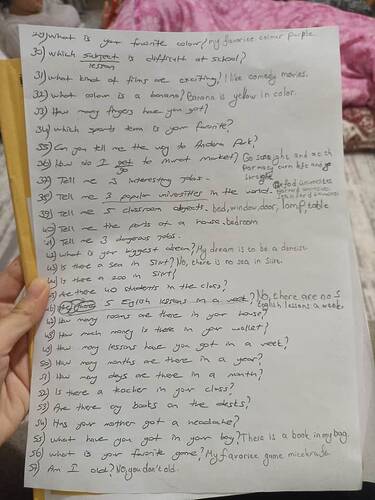 29) What is your favorite colour? my favorite colour purple.
30) Which subject is difficult at school?
lesson
31) What kind of films are exciting? I like comedy movies.
32) What colour is a banana? Banana is yellow in color.
33) How many fingers have you got?
34) Which sports team is your favorite?
35) Can you tell me the way to Andera Park?
36) How do I get to murat market? Go straight and at th
go Pharmacy turn left and go straight
37) Tell me 3 interesting jobs.
38) Tell me 3 popular universities in the world. Oxford university
harvard university
Stanford university
39) Tell me 5 classroom objects. bed, window, door, lamp, table
40) Tell me the parts of a house. bedroom
41) Tell me 3 dangerous jobs.
42) What is your biggest dream? My dream is to be a dentist
43) Is there a sea in Siirt? No, there is no sea in Siire.
44) Is there a zoo in Siirt?
45) Are there 40 students in the class?
46) Are there 5 English lessons in a week? No, there are no 5
English lessons a week.
47) How many rooms are there in your house?
48) How much money is there in your wallet?
49) How many lessons have you got in a week?
50) How many months are there in a year?
51) How many days are there in a month?
52) Is there a teacher in your class?
53) Are there any books on the desks?
54) Has your mother got a headache?
55) What have you got in your bag? There is a book in my bag.
56) What is your favorite game? My favorite game minecraft.
57) Am I old? No, you don't old.